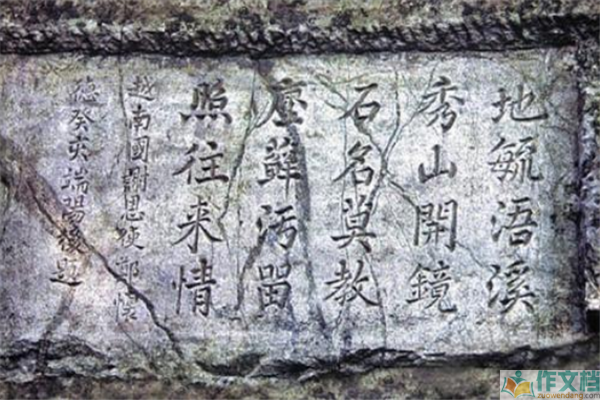 地毓浯溪
秀山開鏡
石名莫教
塵蘚污留
照往来情
越南國謝恩使鄭懷
德癸亥端陽後題
作文档
zuowendang.com